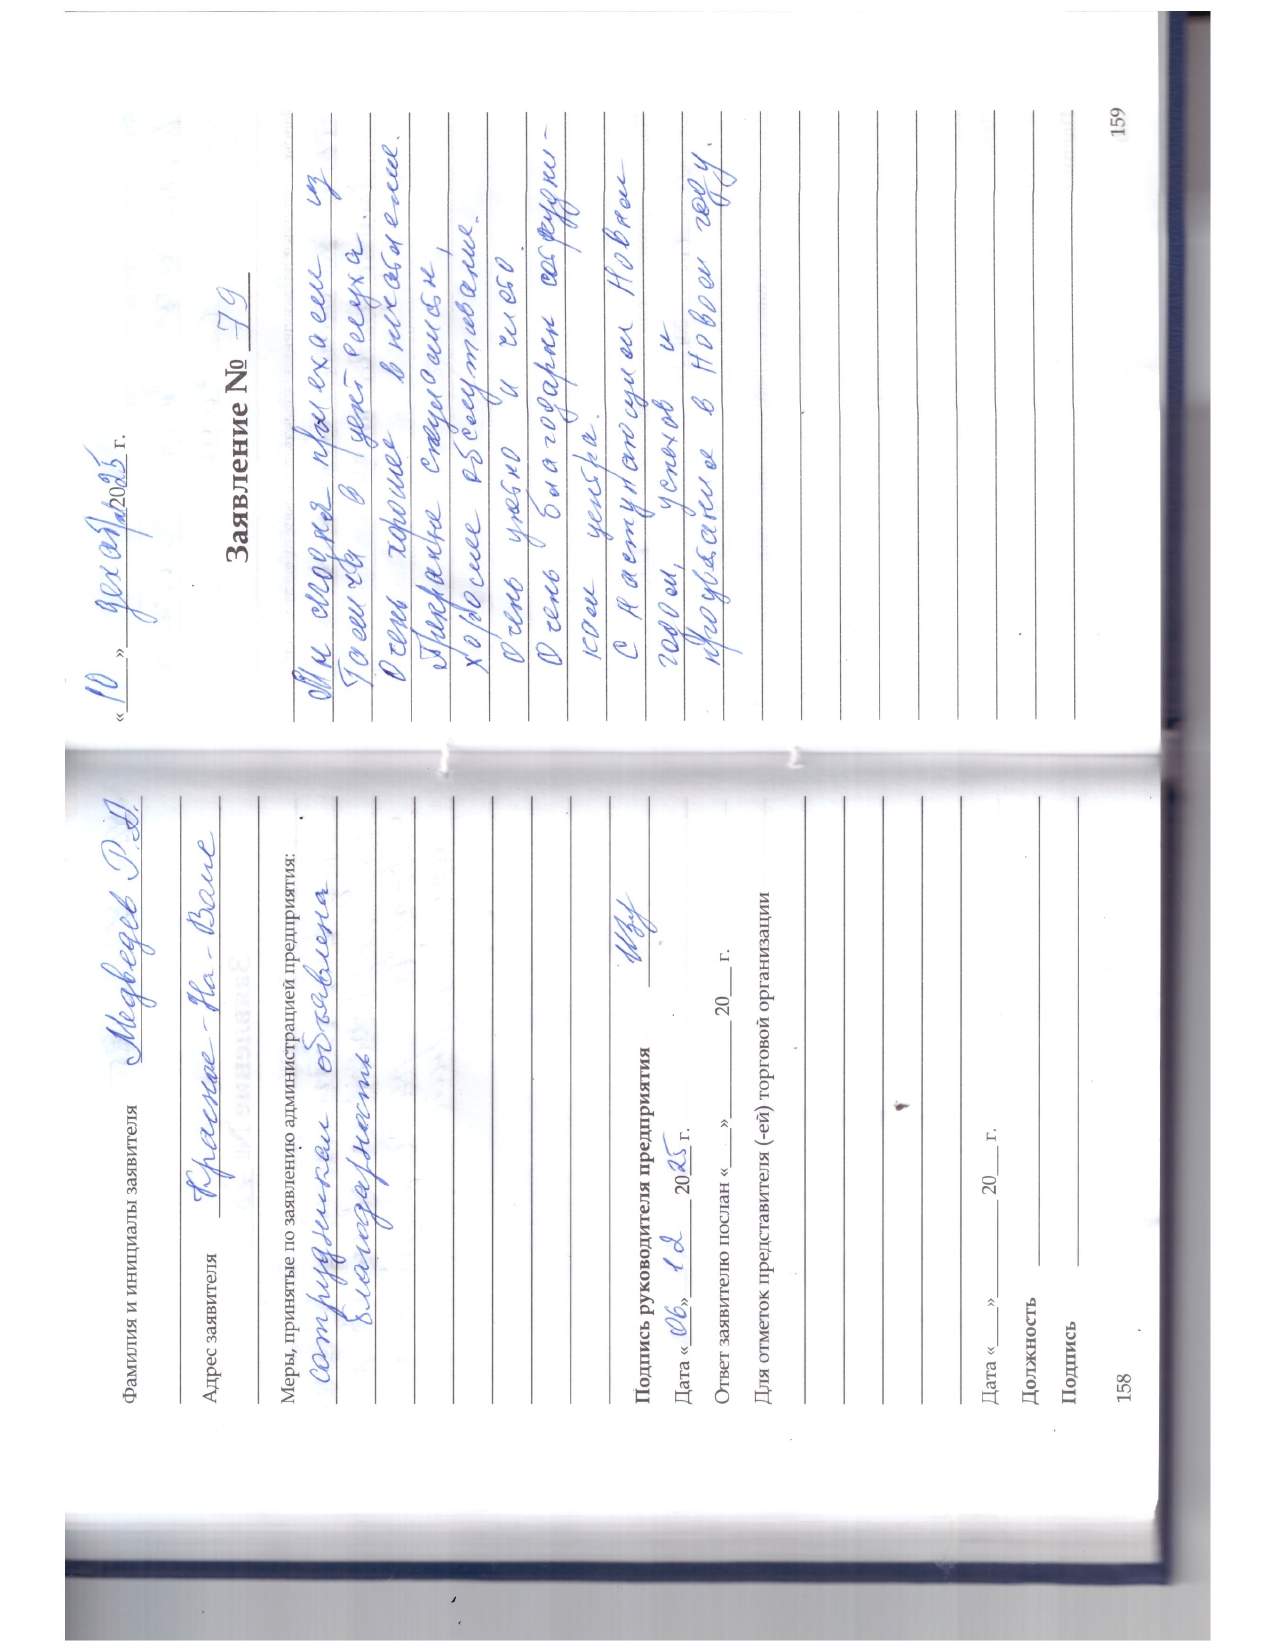 Фамилия и инициалы заявителя Медведев Р.А.
Адрес заявителя Красное-На-Волге
Меры, принятые по заявлению администрацией предприятия:
сотрудникам объявлена
благодарность
Подпись руководителя предприятия
Дата «06» 12 2025 г.
Ответ заявителю послан «___» ________ 20___ г.
Для отметок представителя (-ей) торговой организации
Дата «____» ________ 20___ г.
Должность
Подпись
158
«10» декабря 2025 г.
Заявление № 79
Мы сюда приехали из
в центр слуха.
Очень хорошее впечатление.
Прекрасные специалисты,
хорошее обслуживание.
Очень уютно и чисто.
Очень благодарны сотрудни-
кам центра.
С наступающим Новым
годом, успехов и
процветание в Новом году.
159